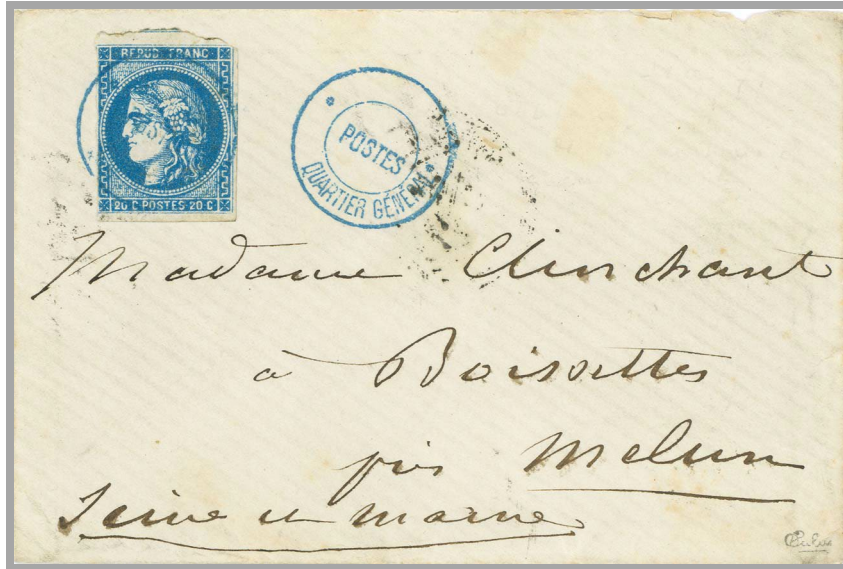 REPUB FRANC
20 C POSTES 20 C
POSTES
QUARTIER GÉNÉRAL
Madame Clinchant
à Boissettes
près Melun
Seine et marne